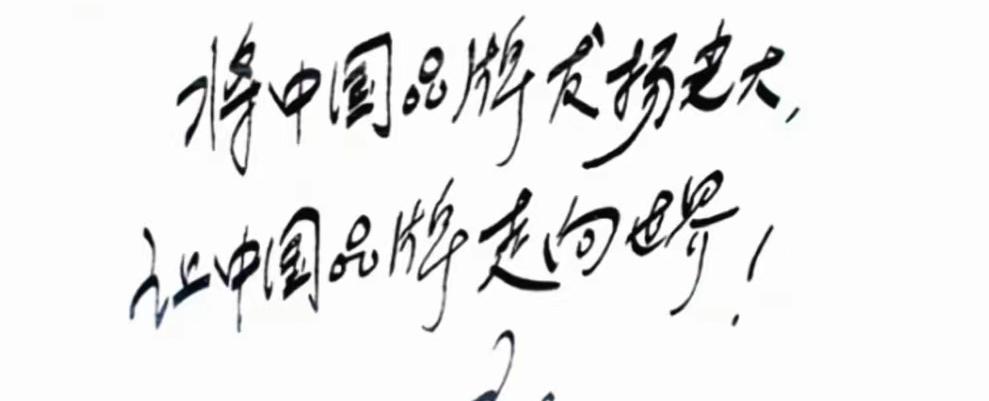 将中国品牌发扬光大,
让中国品牌走向世界!